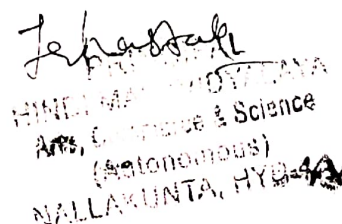 HINDI MAHAVIDYALAYA
Arts, Commerce & Science
(Autonomous)
NALLAKUNTA, HYD-44